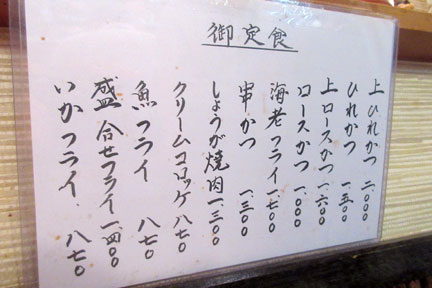 御定食
上ひれかつ 二、〇〇〇
ひれかつ 一、五〇〇
上ロースかつ 一、六〇〇
ロースかつ 一、〇〇〇
海老フライ 一、七〇〇
串かつ 一、三〇〇
しょうが焼肉 一、三〇〇
クリームコロッケ 八七〇
魚フライ 八七〇
盛合せフライ 一、四〇〇
いかフライ 八七〇